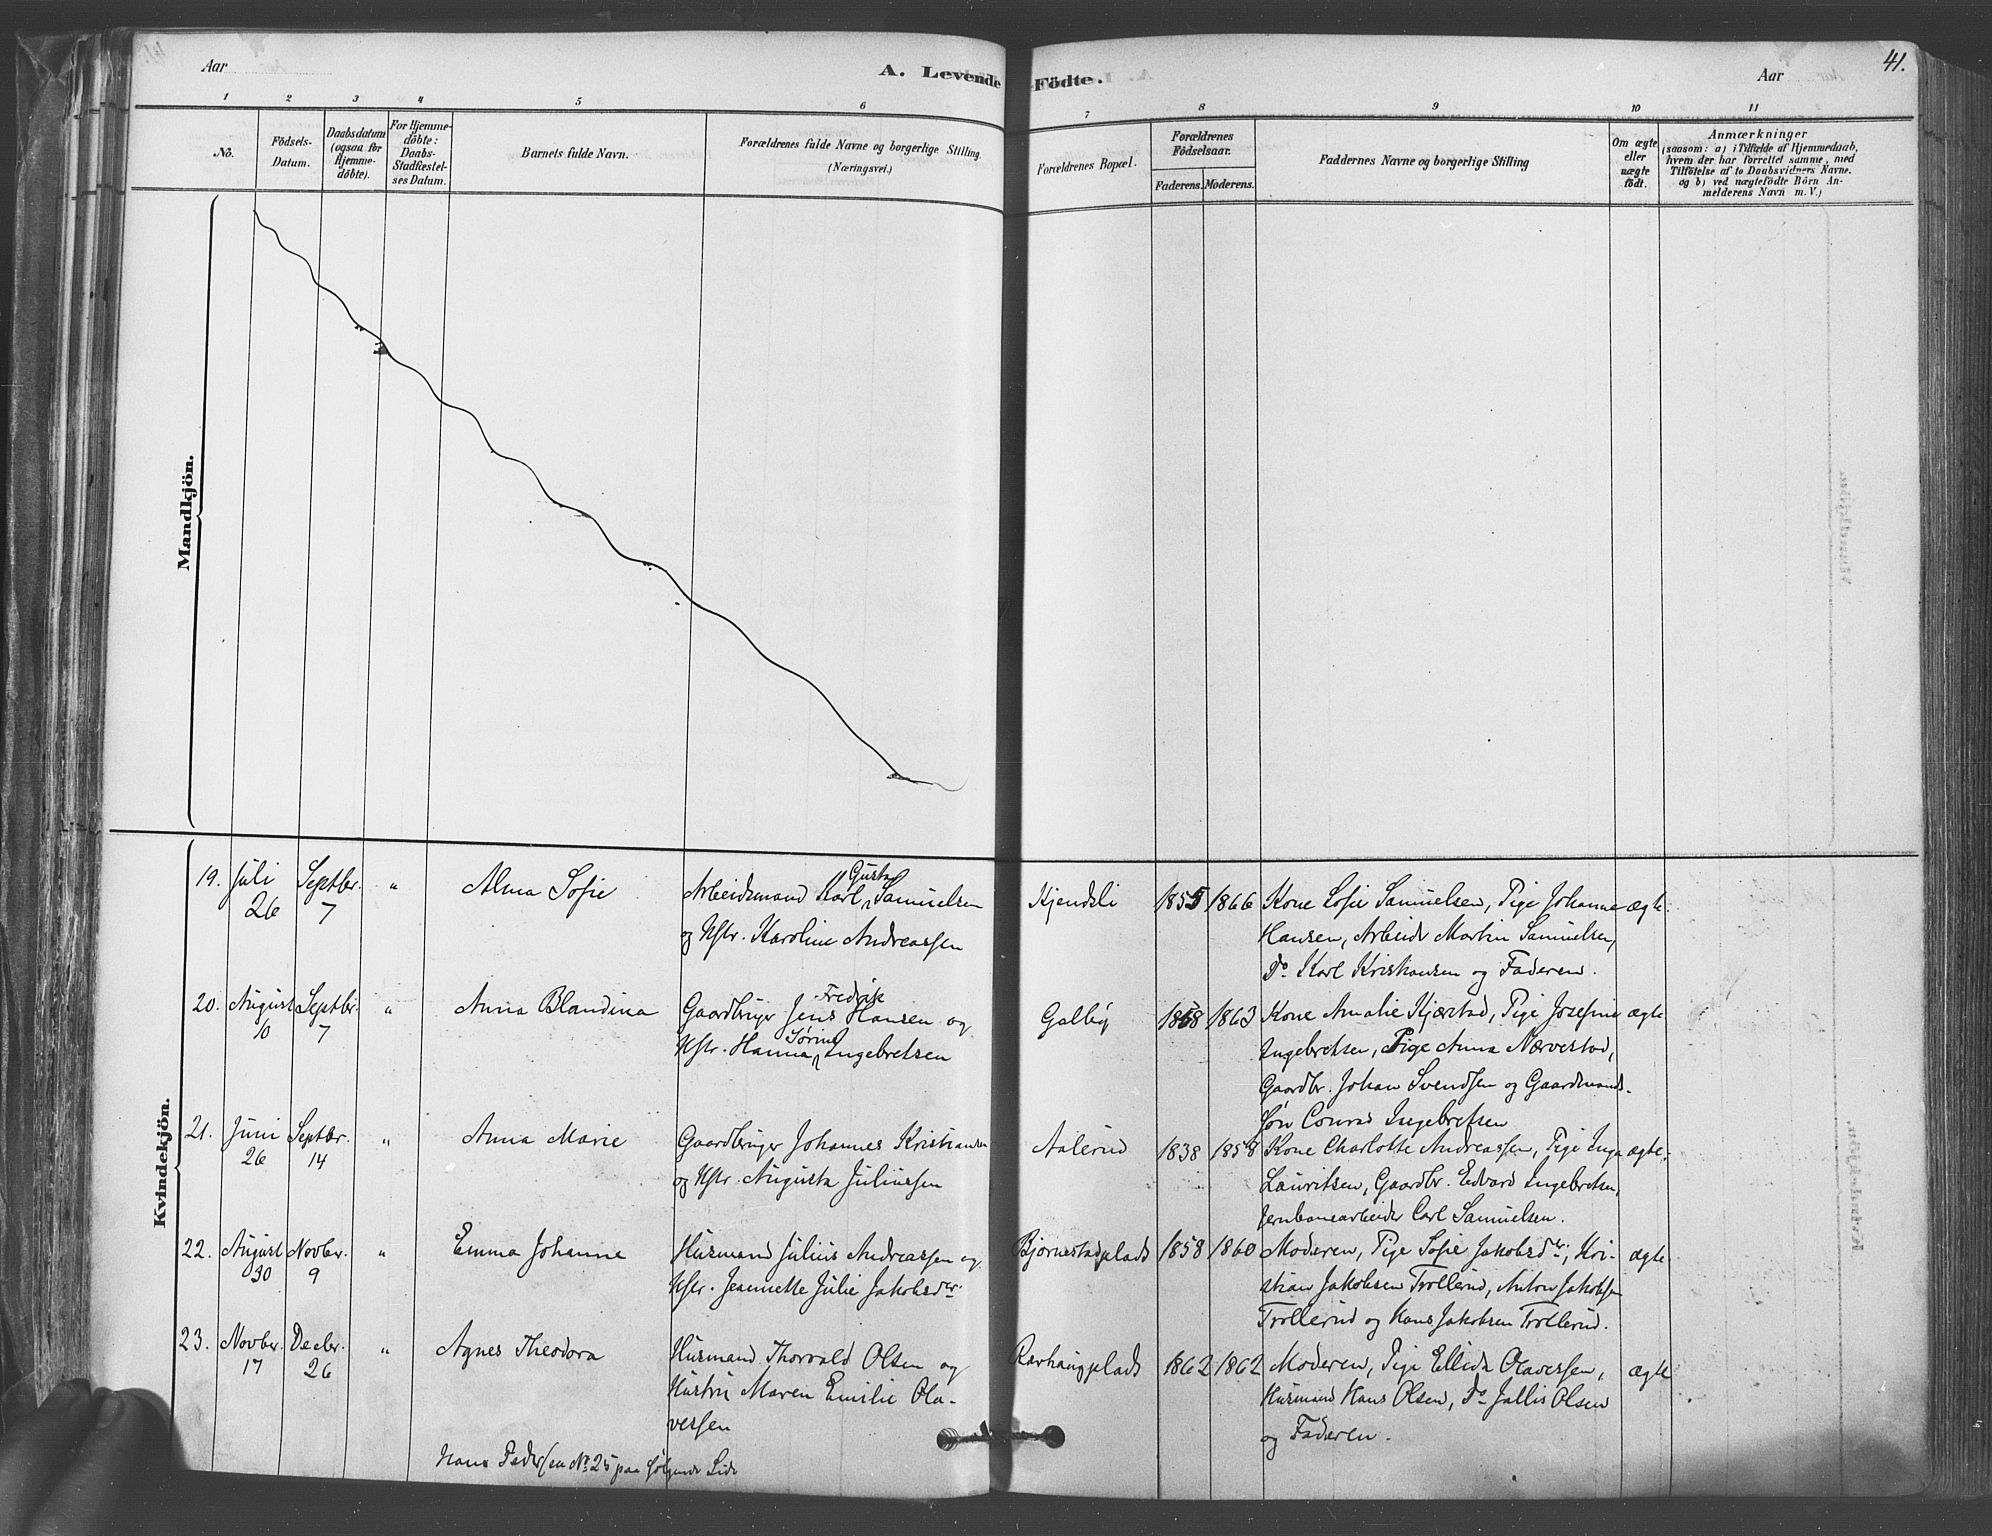 Aar
A. Levende Födte.
Aar
41.
1 2 3 4 5 6 7 8 9 10 11
No.
Födsels-
Datum.
Daabsdatum
(ogsaa for
Hjemme-
døbte).
For Hjemme-
døbte:
Daabs-
Stadfæstel-
ses Datum.
Barnets fulde Navn.
Forældrenes fulde Navne og borgerlige Stilling
(Næringsvei.)
Forældrenes Bopæl.
Forældrenes
Födselsaar.
Faderens. Moderens.
Faddernes Navne og borgerlige Stilling
Om ægte
eller
uægte
födt.
Anmærkninger
(saasom: a) i Tilfælde af Hjemmedaab,
hvem der har forrettet samme, med
Tilföielse af to Daabsvidners Navne.
og b) ved uægtefödte Börn An-
melderens Navn m. V.)
Mandkjön.
Kvindekjön.
19. Juli Septbr. " Alma Sofie Arbeidsmand Karl Gustav Samuelsen Kjendsli 1855 1866 Kone Sofie Samuelsen, Pige Johanne ægte.
26 7 og Hstr. Karoline Andreassen Hansen, Arbeidr Martin Samuelsen,
Do Karl Kristiansen og Faderen.
20. August Septbr. " Anna Blandina Gaardbruger Jens Fredrik Hansen og Galby 1858 1863 Kone Amalie Kjærstad, Pige Josefine ægte
10 7 Hstr. Hanna Sørine Ingebretsen Ingebretsen, Pige Anna Nærvestad,
Gaardbr. Johan Svendsen og Gaardmands-
søn Conrad Ingebretsen
21. Juni Septbr. " Anna Marie Gaardbruger Johannes Kristiansen Aalerud 1838 1858 Kone Charlotte Andreassen, Pige Inga ægte.
26 14 og Hstr. Augusta Juliussen Lauritsen, Gaardbr. Edvard Ingebretsen,
Jernbanearbeider Carl Samuelsen.
22. August Novbr. " Emma Johanne Husmand Julius Andreassen og Bjørnestadplads 1858 1860 Moderen, Pige Sofie Jakobsdtr., Kri- ægte
30 9 Hstr. Jeanette Julie Jakobsdtr. stian Jakobsen Trollerud, Anton Jakobsen
Trollerud og Hans Jakobsen Trollerud.
23. Novbr. Decbr. " Agnes Theodora Husmand Thorvald Olsen og Ravhaugplads 1862 1862 Moderen, Pige Ellida Olavessen, ægte
17 26 Hustru Maren Emilie Ola- Husmand Hans Olsen, Do Jallis Olsen
vessen og Faderen.
No 25 paa følgende Side